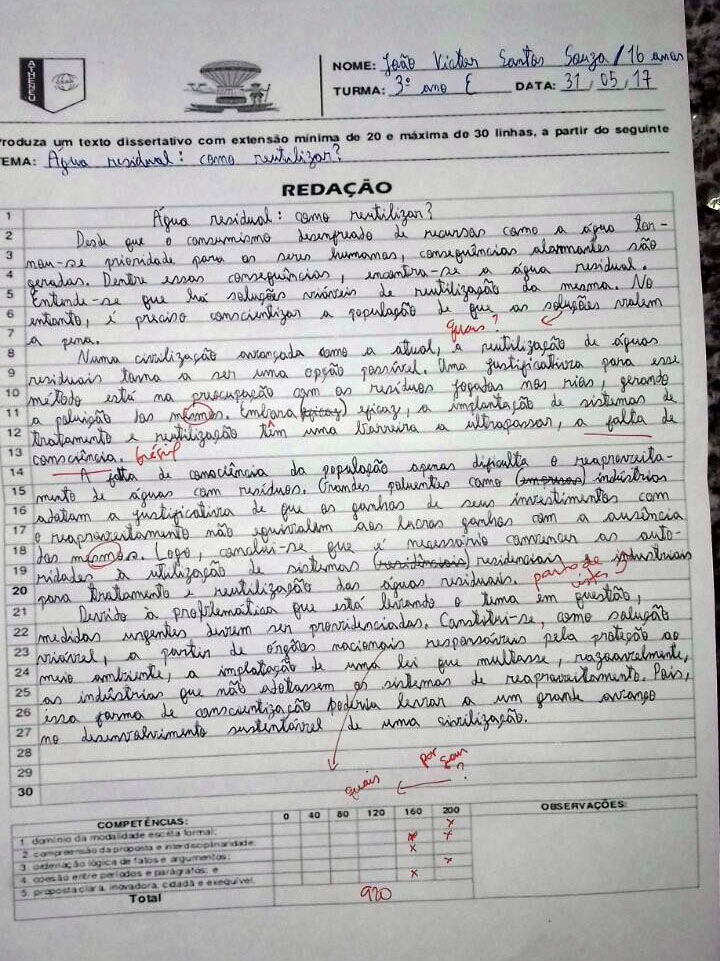 ATHENEU
NOME: João Victor Santos Souza / 16 anos
TURMA: 3º ano E DATA: 31 / 05 / 17
Produza um texto dissertativo com extensão mínima de 20 e máxima de 30 linhas, a partir do seguinte
TEMA: Água residual: como reutilizar?
REDAÇÃO
1 Água residual: como reutilizar?
2 Desde que o consumismo desenfreado de recursos como a água tor-
3 nou-se prioridade para os seres humanos, consequências alarmantes são
4 geradas. Dentre essas consequências, encontra-se a água residual.
5 Entende-se que há soluções viáveis de reutilização da mesma. No
6 entanto, é preciso conscientizar a população de que as soluções valem
7 a pena. quais?
8 Numa civilização avançada como a atual, a reutilização de águas
9 residuais torna a ser uma opção possível. Uma justificativa para esse
10 método está na preocupação com os resíduos jogados nos rios, gerando
11 a poluição dos mesmos. Embora (eficaz) eficaz, a implantação de sistemas de
12 tratamento e reutilização têm uma barreira a ultrapassar, a falta de
13 consciência. frágil
14 A falta de consciência da população apenas dificulta o reaproveita-
15 mento de águas com resíduos. Grandes poluentes como (empresas) indústrias
16 adotam a justificativa de que os ganhos de seus investimentos com
17 o reaproveitamento não equivalem aos lucros ganhos com a ausência
18 dos mesmos. Logo, conclui-se que é necessário convencer as auto-
19 ridades à utilização de sistemas (residênciais) residenciais e industriais
20 para tratamento e reutilização das águas residuais. ponto de vista
21 Devido à problemática que está levando o tema em questão,
22 medidas urgentes devem ser providenciadas. Constrói-se, como solução
23 viável, a partir de órgãos nacionais responsáveis pela proteção ao
24 meio ambiente, a implatação de uma lei que multasse, razoavelmente,
25 as indústrias que não adotassem os sistemas de reaproveitamento. Pois,
26 essa forma de conscientização poderia levar a um grande avanço
27 no desenvolvimento sustentável de uma civilização.
28
29
30 quais por quem ?
COMPETÊNCIAS: 0 40 80 120 160 200 OBSERVAÇÕES:
1 domínio da modalidade escrita formal; x
2 compreensão da proposta e interdisciplinaridade; x x
3 ordenação lógica de fatos e argumentos; x
4 coesão entre períodos e parágrafos; e x
5 proposta clara, inovadora, cidadã e exequível. x
Total 920